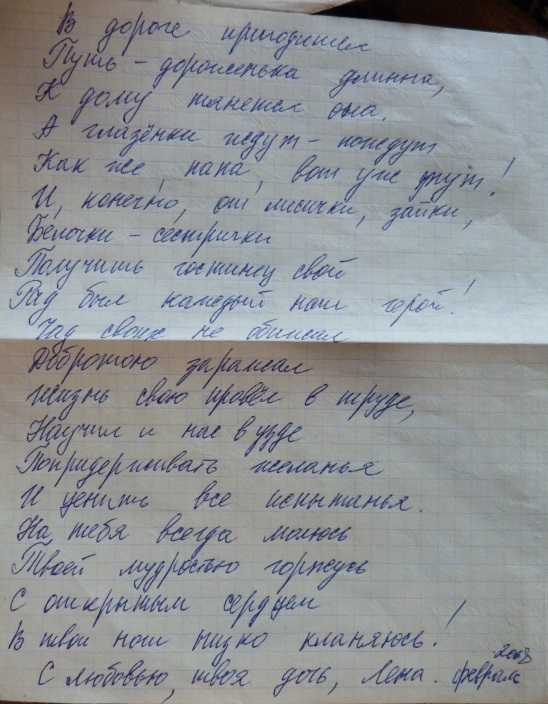 В дороге пригодится
Путь - дороженька длинна,
К дому тянется она.
А глазёнки ждут - пождут
Как же, папа, вот уже тут!
И, конечно, от лисички, зайки,
Белочки - сестрички
Получить гостинец свой
Рад был каждый наш герой!
Чад своих не обижал
Добротою заражал
Жизнь свою провёл в труде,
Научил и нас в узде
Попридерживать желанья
И ценить все испытанья.
На тебя всегда молюсь
Твоей мудростью горжусь
С открытым сердцем
В твои ноги низко кланяюсь!
С любовью, твоя дочь, Лена. февраль 2008